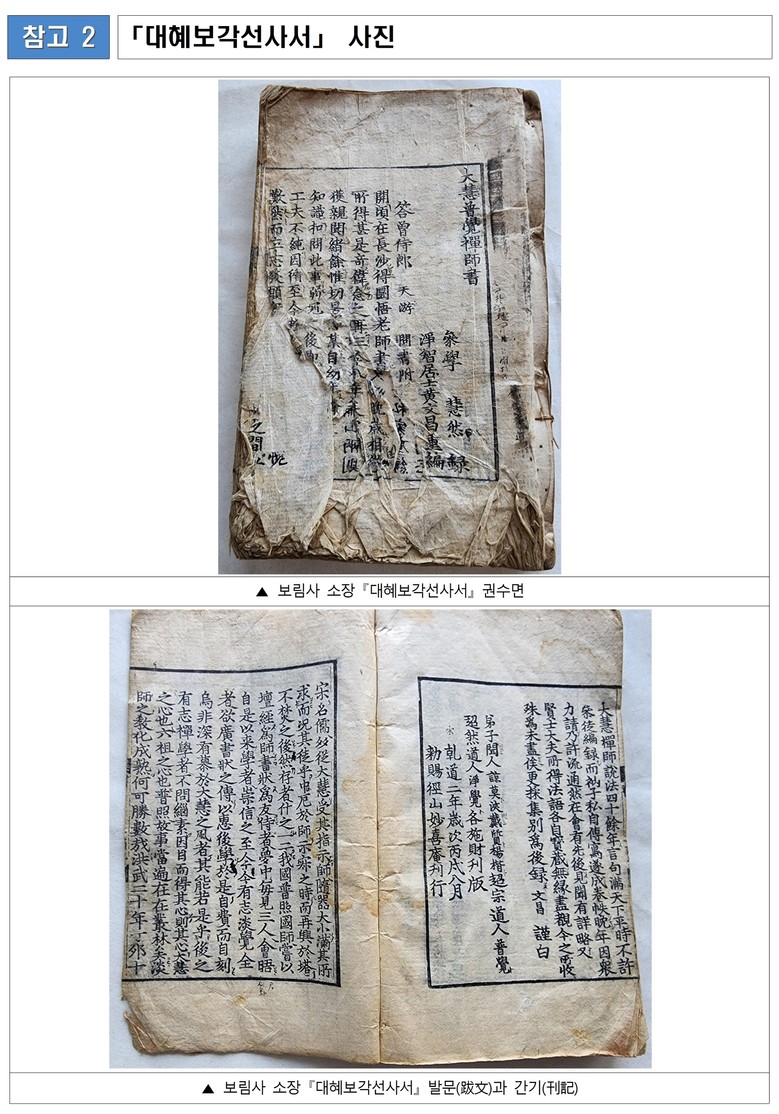 참고 2
「대혜보각선사서」 사진
大慧普覺禪師書
參學 慧然 錄
淨智居士黃文昌重編
答曾侍郎 天游 問書附
開頃在長沙得圜悟老師書
所得甚是奇偉念之再三
獲親聞緒餘惟切景
知識扣問此事弱冠之後
工夫不純因循至今
歎然而立志發願
之間
▲ 보림사 소장『대혜보각선사서』권수면
大慧禪師說法四十餘年言句滿天下平時不許
參徒編錄而衲子私自傳寫遂成卷帙晩年因衆
力請乃許流通然在會有先後見聞有詳略又
賢士大夫所得法語各自寶藏無緣盡觀今之所收
殊爲未盡佳更採集別爲後錄 文昌 謹白
弟子聞人諒莫 戴質楊楷超宗道人普覺
超然道人淨覺各施財刊版
乾道二年歲次丙戌八月
勅賜徑山妙喜庵刊行
宋名儒多從大慧受其指示師隨器大小滿其所
求而 其徒半 厄於師示寂之時而再興於塔
不焚之後然存者什之一二我國普照國師嘗以
壇經爲師書狀爲友特 夢中每見三人會晤
自是以來學者崇信之至今 有志淡覺全
者欲廣書狀之傳以惠後學於是自費而自刻
烏非深有慕於大慧之風者其能若是乎後之
有志禪學者不問緇素因目而得其心則其心大慧
之心也六祖之心也普照故事當遍在在叢林矣淡
師之敎化成熟何可勝數哉洪武二十年丁卯十
▲ 보림사 소장『대혜보각선사서』발문(跋文)과 간기(刊記)